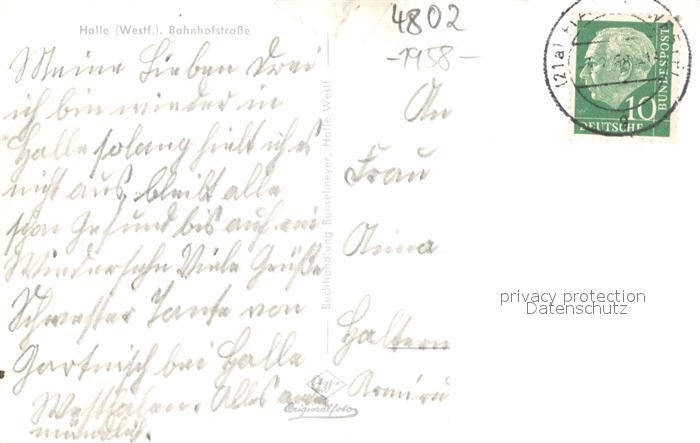 Halle (Westf.). Bahnhofstraße
4802
-1958-
Meine Lieben Drei
ich bin wieder in
Halle solang hielt ich es
nicht aus, bleibt alle
schön Gesund bis auf
Wiedersehn Viele Grüße
Schwester Tante von
Gartnisch bei Halle
Westfalen. Alles
mündlich.
Buchhandlung Bunselmeyer, Halle Westf
Originalfoto
An
Frau
Haltern
(21a)
10
DEUTSCHE
BUNDESPOST
privacy protection
Datenschutz